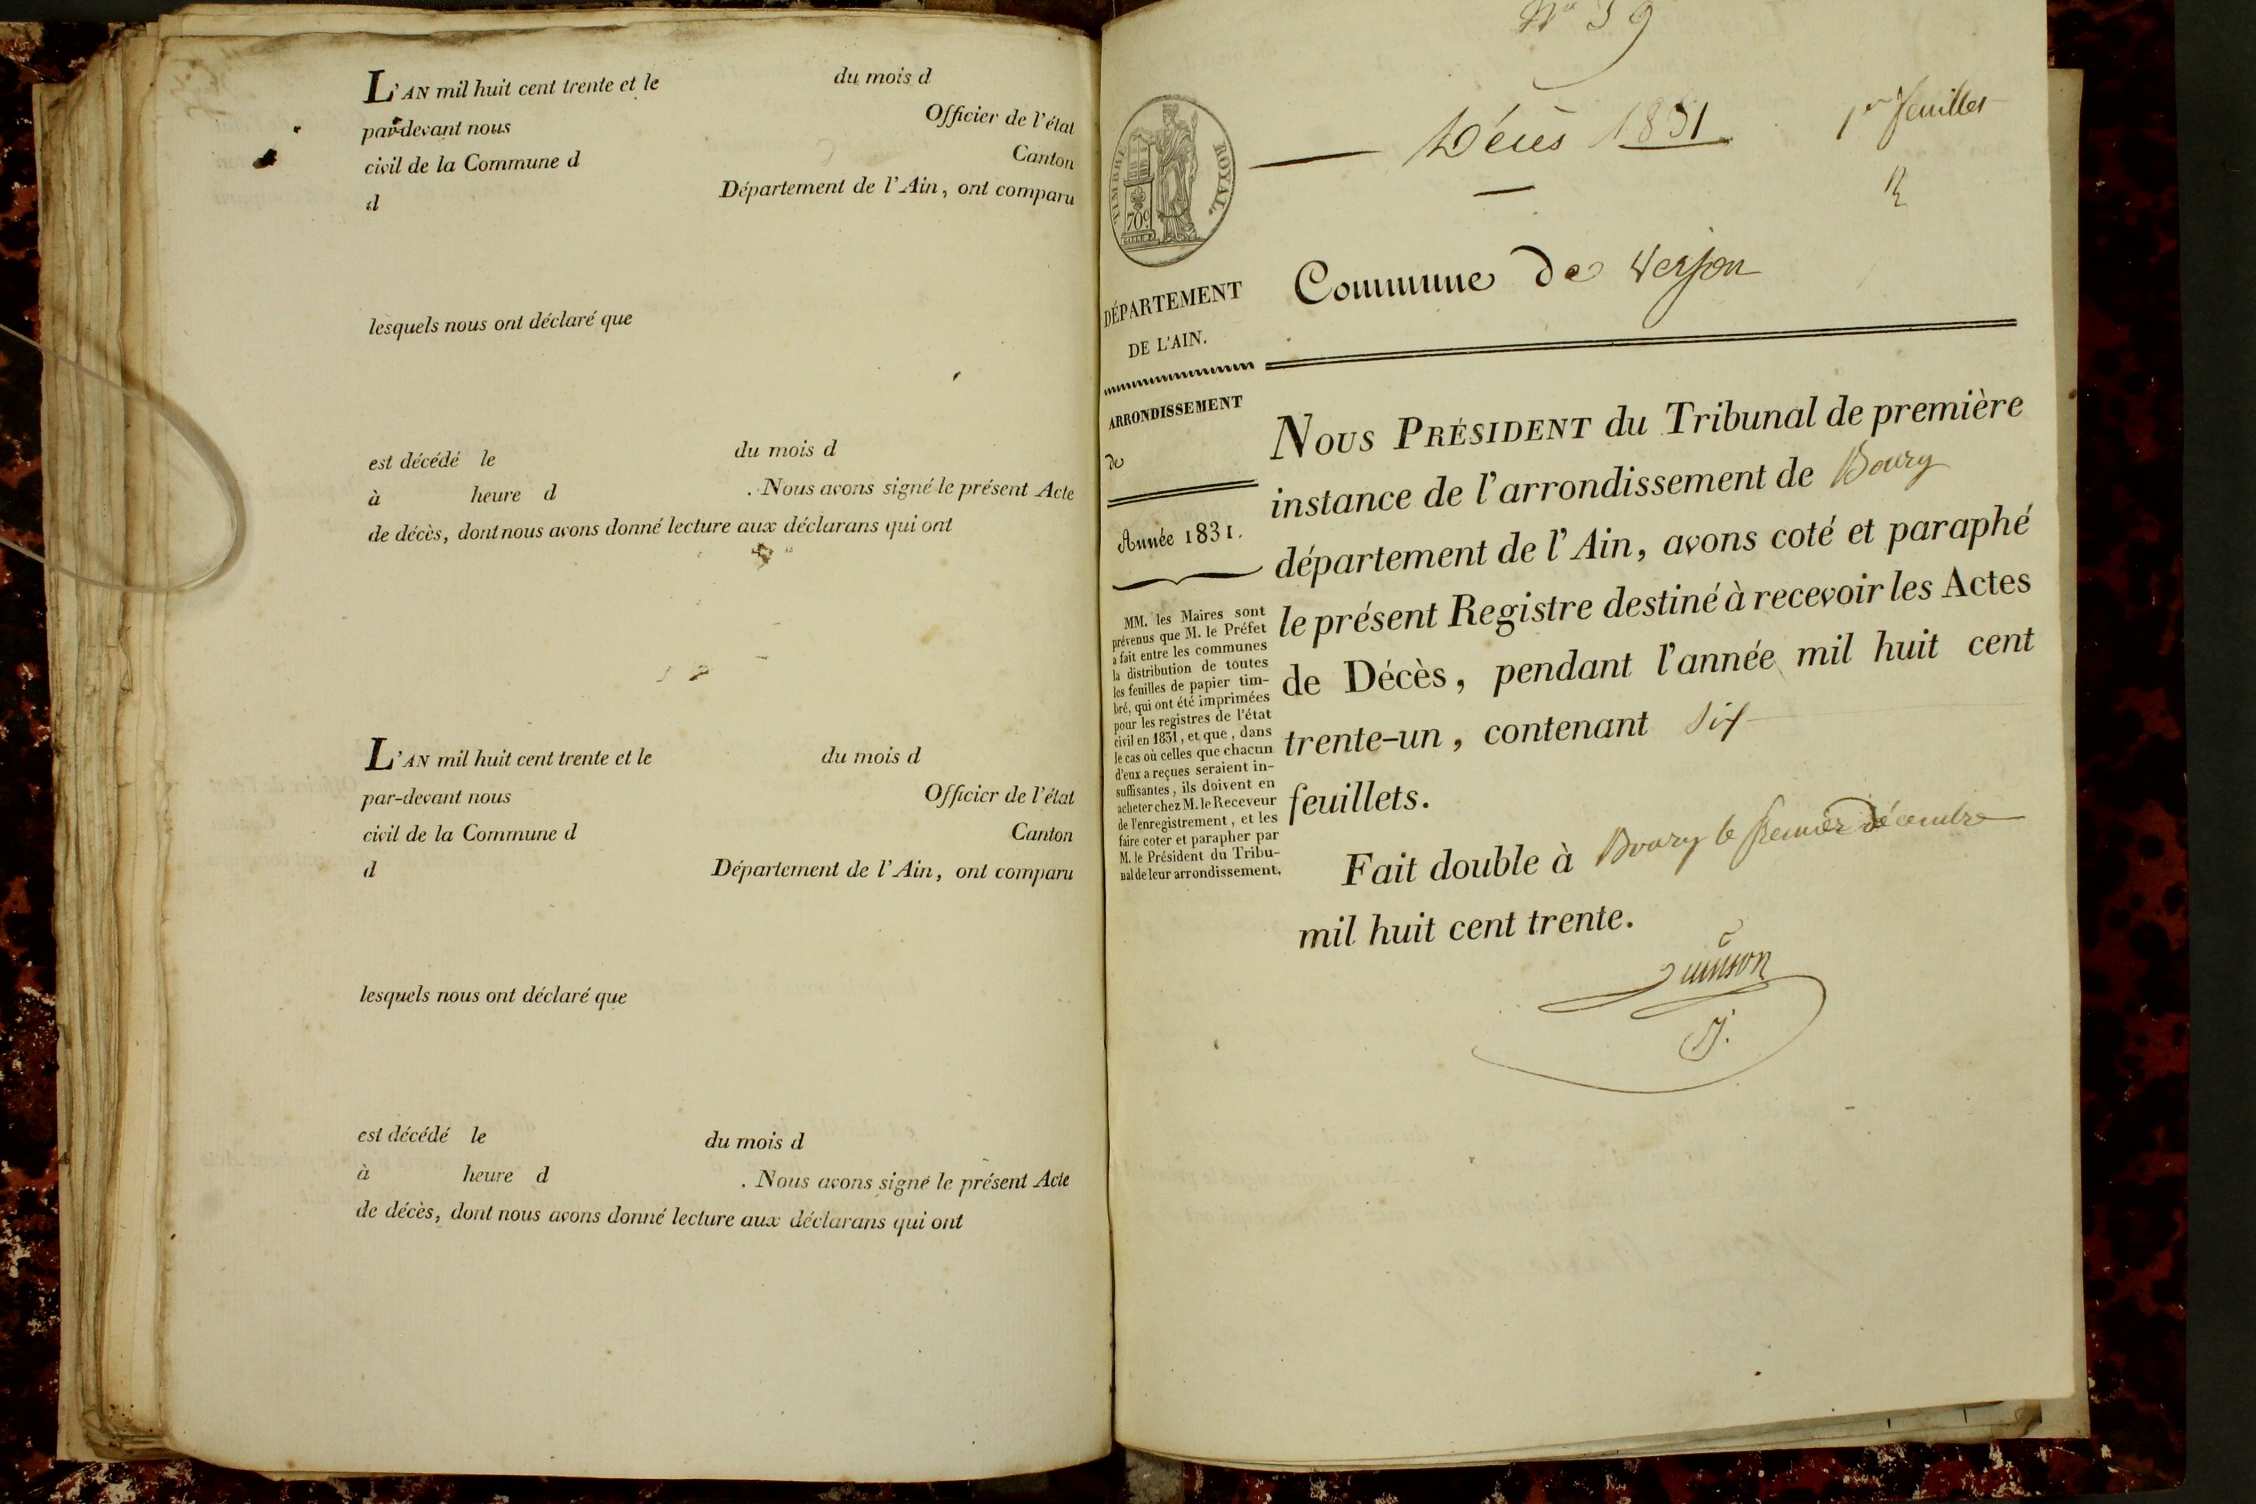 L'AN mil huit cent trente et le du mois d
par-devant nous Officier de l'état
civil de la Commune d Canton
d Département de l'Ain, ont comparu
lesquels nous ont déclaré que
est décédé le du mois d
à heure d . Nous avons signé le présent Acte
de décès, dont nous avons donné lecture aux déclarans qui ont
L'AN mil huit cent trente et le du mois d
par-devant nous Officier de l'état
civil de la Commune d Canton
d Département de l'Ain, ont comparu
lesquels nous ont déclaré que
est décédé le du mois d
à heure d . Nous avons signé le présent Acte
de décès, dont nous avons donné lecture aux déclarans qui ont
Décès 1831
1er feuillet
TIMBRE ROYAL.
70c
Commune de Verjon
DÉPARTEMENT
DE L'AIN.
ARRONDISSEMENT
de
Année 1831.
MM. les Maires sont
prévenus que M. le Préfet
a fait entre les communes
la distribution de toutes
les feuilles de papier tim-
bré, qui ont été imprimées
pour les registres de l'état
civil en 1831, et que, dans
le cas où celles que chacun
d'eux a reçues seraient in-
suffisantes, ils doivent en
acheter chez M. le Receveur
de l'enregistrement, et les
faire coter et parapher par
M. le Président du Tribu-
nal de leur arrondissement.
NOUS PRÉSIDENT du Tribunal de première
instance de l'arrondissement de Bourg
département de l'Ain, avons coté et paraphé
le présent Registre destiné à recevoir les Actes
de Décès, pendant l'année mil huit cent
trente-un, contenant six
feuillets.
Fait double à Bourg le premier décembre
mil huit cent trente.